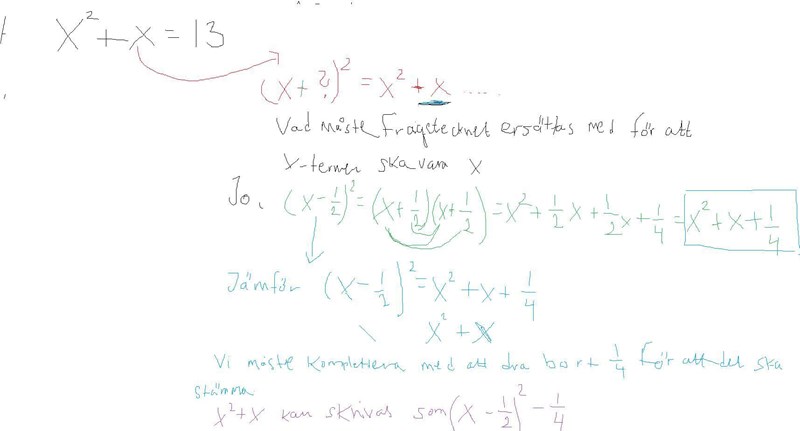 x² + x = 13
(x + ?)² = x² + x .....
Vad måste Frågetecknet ersättas med för att
x-termen ska vara x
Jo, (x - 1/2)² = (x + 1/2)(x + 1/2) = x² + 1/2 x + 1/2 x + 1/4 = x² + x + 1/4
Jämför (x - 1/2)² = x² + x + 1/4
x² + x
Vi måste komplettera med att dra bort 1/4 för att det ska
stämma
x² + x kan skrivas som (x - 1/2)² - 1/4